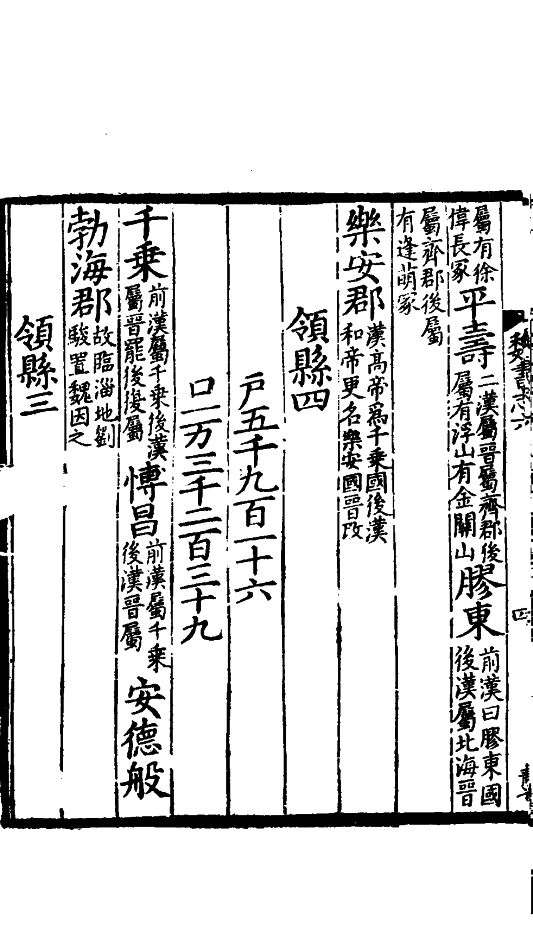 屬有徐偉長冢平壽二漢屬晉屬齊郡後屬有浮山有金關山膠東前漢曰膠東國後漢屬北海晉
屬齊郡後屬有逢萌冢
樂安郡漢高帝為千乘國後漢和帝更名樂安國晉改
領縣四
戶五千九百一十六
口二万三千二百三十九
千乘前漢屬千乘後漢屬晉罷後復屬博昌前漢屬千乘後漢晉屬安德般
勃海郡故臨淄地劉駿置魏因之
領縣三